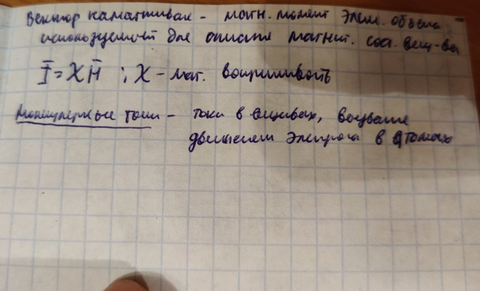 Вектор намагничван - магн. момент элем. объема
используемый для описан магнит. сост. вещ-ва
I̅ = χH̅ ; χ - маг. восприимвость
Молекулярные токи - токи в вещвах, вызваные
движением электрона в атомах